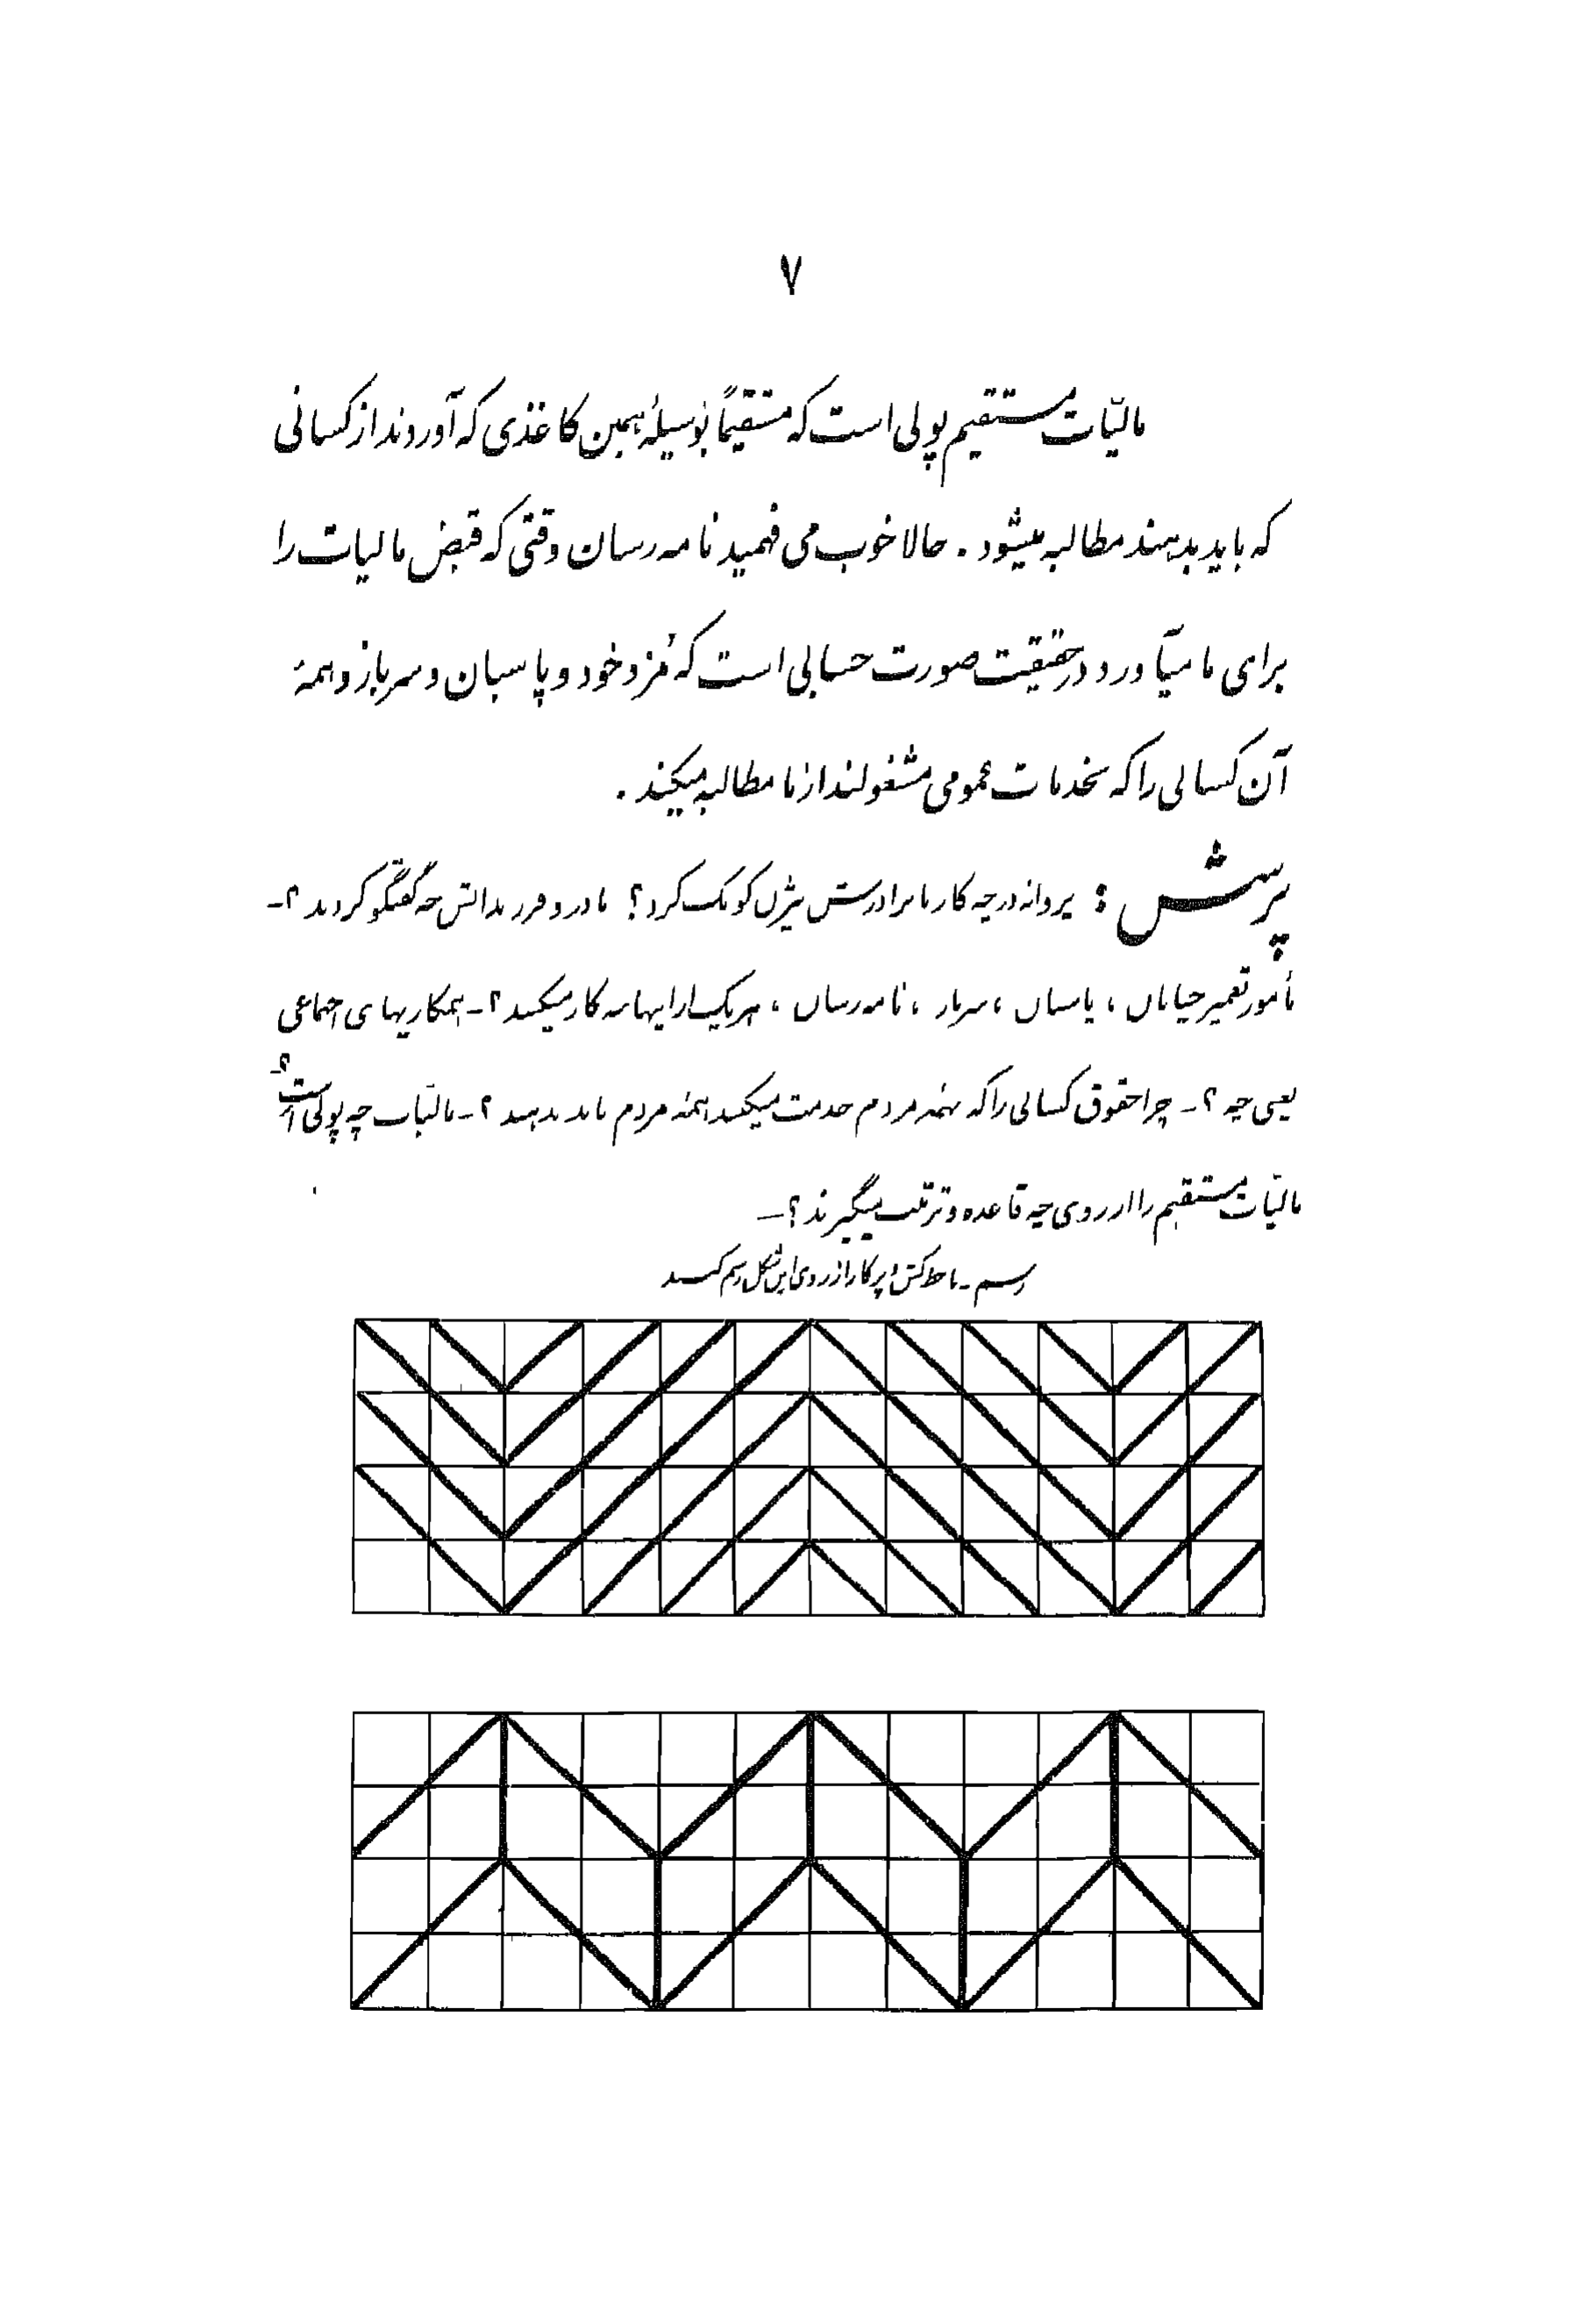 ۷
مالیّات مستقیم پولی است که مستقیماً بوسیلهٔ همین کاغذی که آوردند از کسانی
که باید بدهند مطالبه میشود . حالا خوب می فهمید نامه رسان وقتی که قبض مالیات را
برای ما میآورد در حقیقت صورت حسابی است که مُزد خود و پاسبان و سرباز و همهٔ
آن کسانی را که بخدمات عمومی مشغولند از ما مطالبه میکند .
پرسش : پروانه در چه کار با برادرش بیژن کومک کرد ؟ مادر و فرزندانش چه گفتگو کردند ؟ -
مأمور تعمیر خیابان ، پاسبان ، سرباز ، نامه رسان ، هر یک از اینها چه کار میکنند ؟ - همکاریهای اجتماعی
یعنی چه ؟ - چرا حقوق کسانی را که بهمه مردم خدمت میکنند همهٔ مردم باید بدهند ؟ - مالیّات چه پولی است ؟ -
مالیّات مستقیم را از روی چه قاعده و ترتیب میگیرند ؟ -
رسم - با خط کش و پرگار از روی این شکل رسم کنید